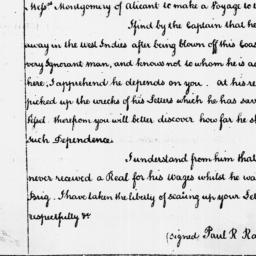 Mess.rs Montgomery of Alicant to make a Voyage to t
I find by the Captain that he
away in the West Indies after being blown off this Coas
very Ignorant man, and knows not to whom he is ac
here, I apprehend he depends on you. At his re
picked up the wrecks of his Letters which he has sav
therefrom you will better discover how far he s
Such Dependence
I understand from him that
never received a Real for his Wages whilst he wa
Brig. I have taken the liberty of sealing up your Let
respectfully &
(signed) Paul R Ra